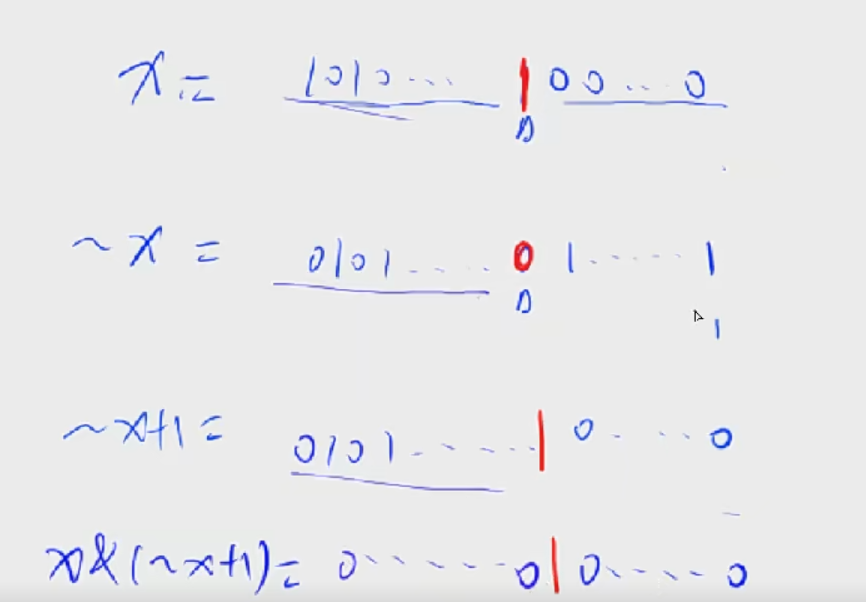 x = 1010... 1 00...0
~x = 0101..... 0 1......1
1
~x+1 = 0101.......1 0.....0
x&(~x+1) = 0.......0 1 0......0